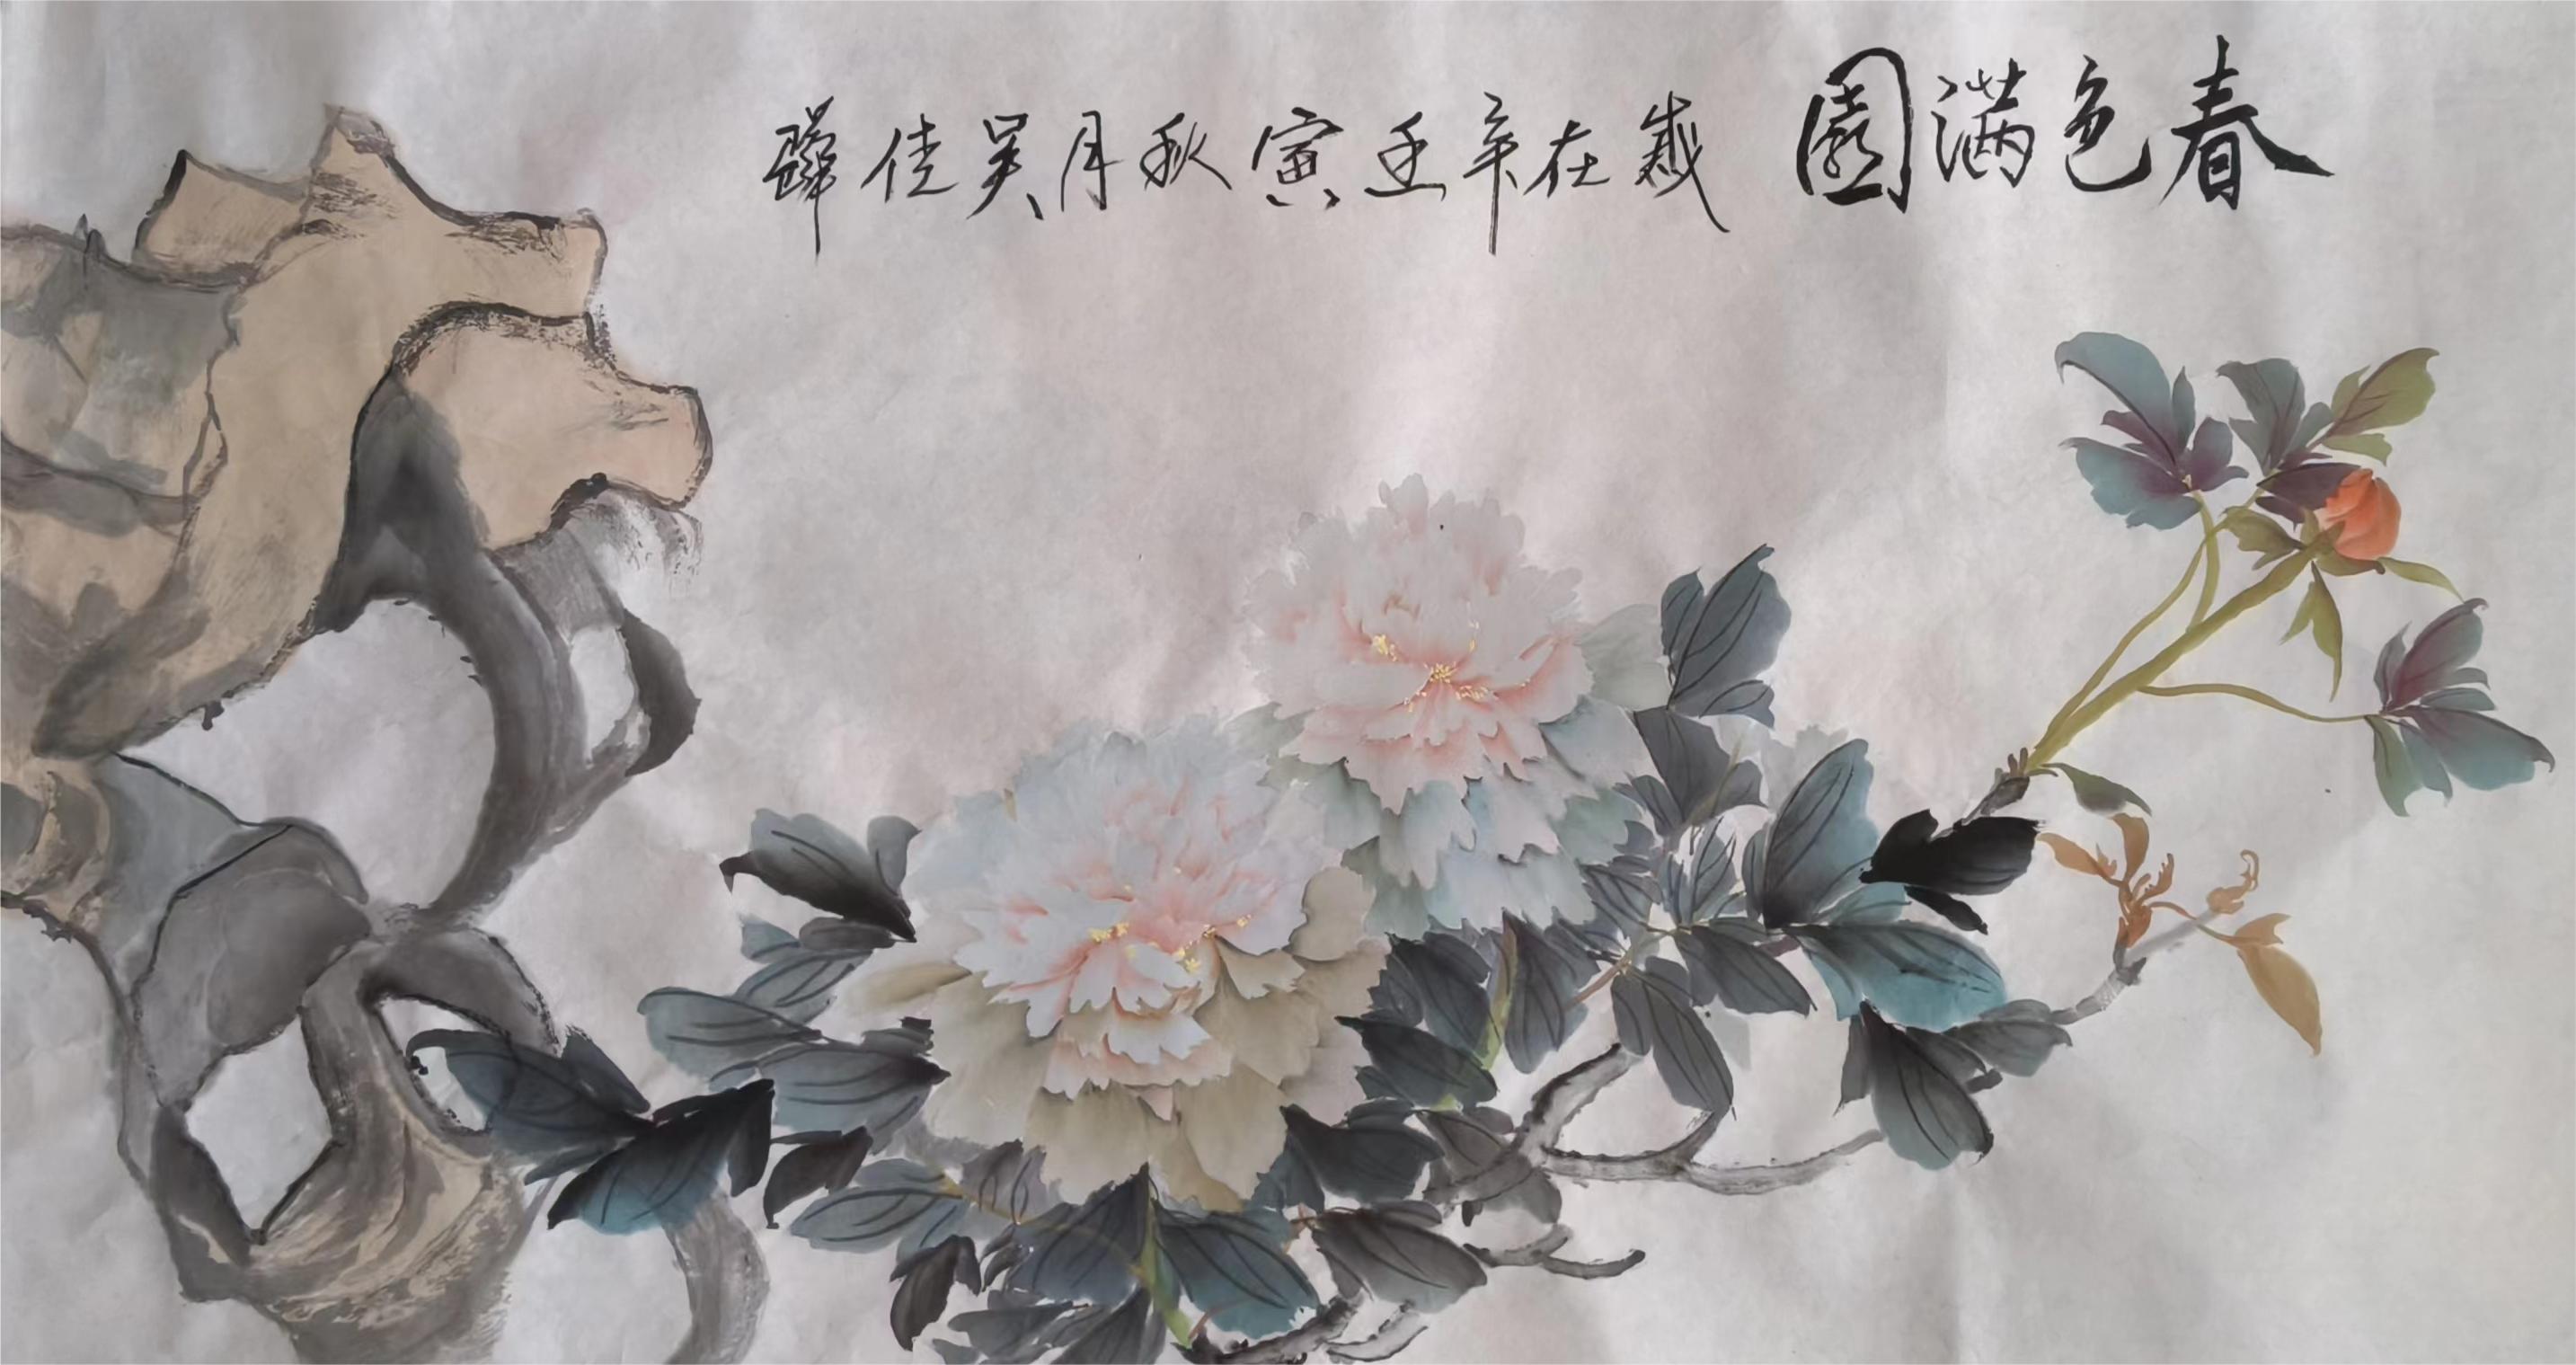 春色滿園 歲在辛壬寅秋月吴佳